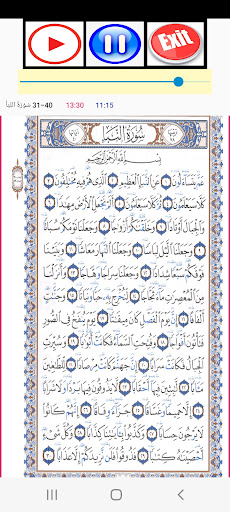 Exit
31-40 سورة النبأ 13:30 11:15
سُورَةُ النَّبَإِ
بِسْمِ اللَّهِ الرَّحْمَٰنِ الرَّحِيمِ
عَمَّ يَتَسَاءَلُونَ ١ عَنِ النَّبَإِ الْعَظِيمِ ٢ الَّذِي هُمْ فِيهِ مُخْتَلِفُونَ ٣
كَلَّا سَيَعْلَمُونَ ٤ ثُمَّ كَلَّا سَيَعْلَمُونَ ٥ أَلَمْ نَجْعَلِ الْأَرْضَ مِهَادًا ٦
وَالْجِبَالَ أَوْتَادًا ٧ وَخَلَقْنَاكُمْ أَزْوَاجًا ٨ وَجَعَلْنَا نَوْمَكُمْ سُبَاتًا
٩ وَجَعَلْنَا اللَّيْلَ لِبَاسًا ١٠ وَجَعَلْنَا النَّهَارَ مَعَاشًا ١١ وَبَنَيْنَا
فَوْقَكُمْ سَبْعًا شِدَادًا ١٢ وَجَعَلْنَا سِرَاجًا وَهَّاجًا ١٣ وَأَنزَلْنَا
مِنَ الْمُعْصِرَاتِ مَاءً ثَجَّاجًا ١٤ لِّنُخْرِجَ بِهِ حَبًّا وَنَبَاتًا ١٥ وَجَنَّاتٍ
أَلْفَافًا ١٦ إِنَّ يَوْمَ الْفَصْلِ كَانَ مِيقَاتًا ١٧ يَوْمَ يُنفَخُ فِي الصُّورِ
فَتَأْتُونَ أَفْوَاجًا ١٨ وَفُتِحَتِ السَّمَاءُ فَكَانَتْ أَبْوَابًا ١٩ وَسُيِّرَتِ
الْجِبَالُ فَكَانَتْ سَرَابًا ٢٠ إِنَّ جَهَنَّمَ كَانَتْ مِرْصَادًا ٢١ لِّلطَّاغِينَ
مَآبًا ٢٢ لَّابِثِينَ فِيهَا أَحْقَابًا ٢٣ لَّا يَذُوقُونَ فِيهَا بَرْدًا وَلَا شَرَابًا
٢٤ إِلَّا حَمِيمًا وَغَسَّاقًا ٢٥ جَزَاءً وِفَاقًا ٢٦ إِنَّهُمْ كَانُوا
لَا يَرْجُونَ حِسَابًا ٢٧ وَكَذَّبُوا بِآيَاتِنَا كِذَّابًا ٢٨ وَكُلَّ شَيْءٍ
أَحْصَيْنَاهُ كِتَابًا ٢٩ فَذُوقُوا فَلَن نَّزِيدَكُمْ إِلَّا عَذَابًا ٣٠